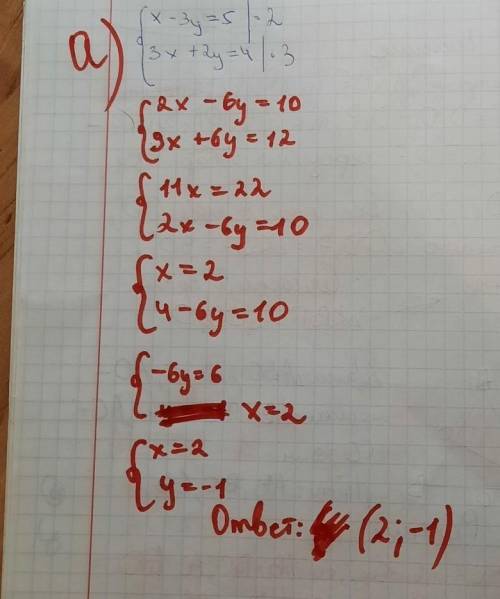 а)
x - 3y = 5 | · 2
3x + 2y = 4 | · 3
2x - 6y = 10
9x + 6y = 12
11x = 22
2x - 6y = 10
x = 2
4 - 6y = 10
-6y = 6
x = 2
x = 2
y = -1
Ответ: (2; -1)